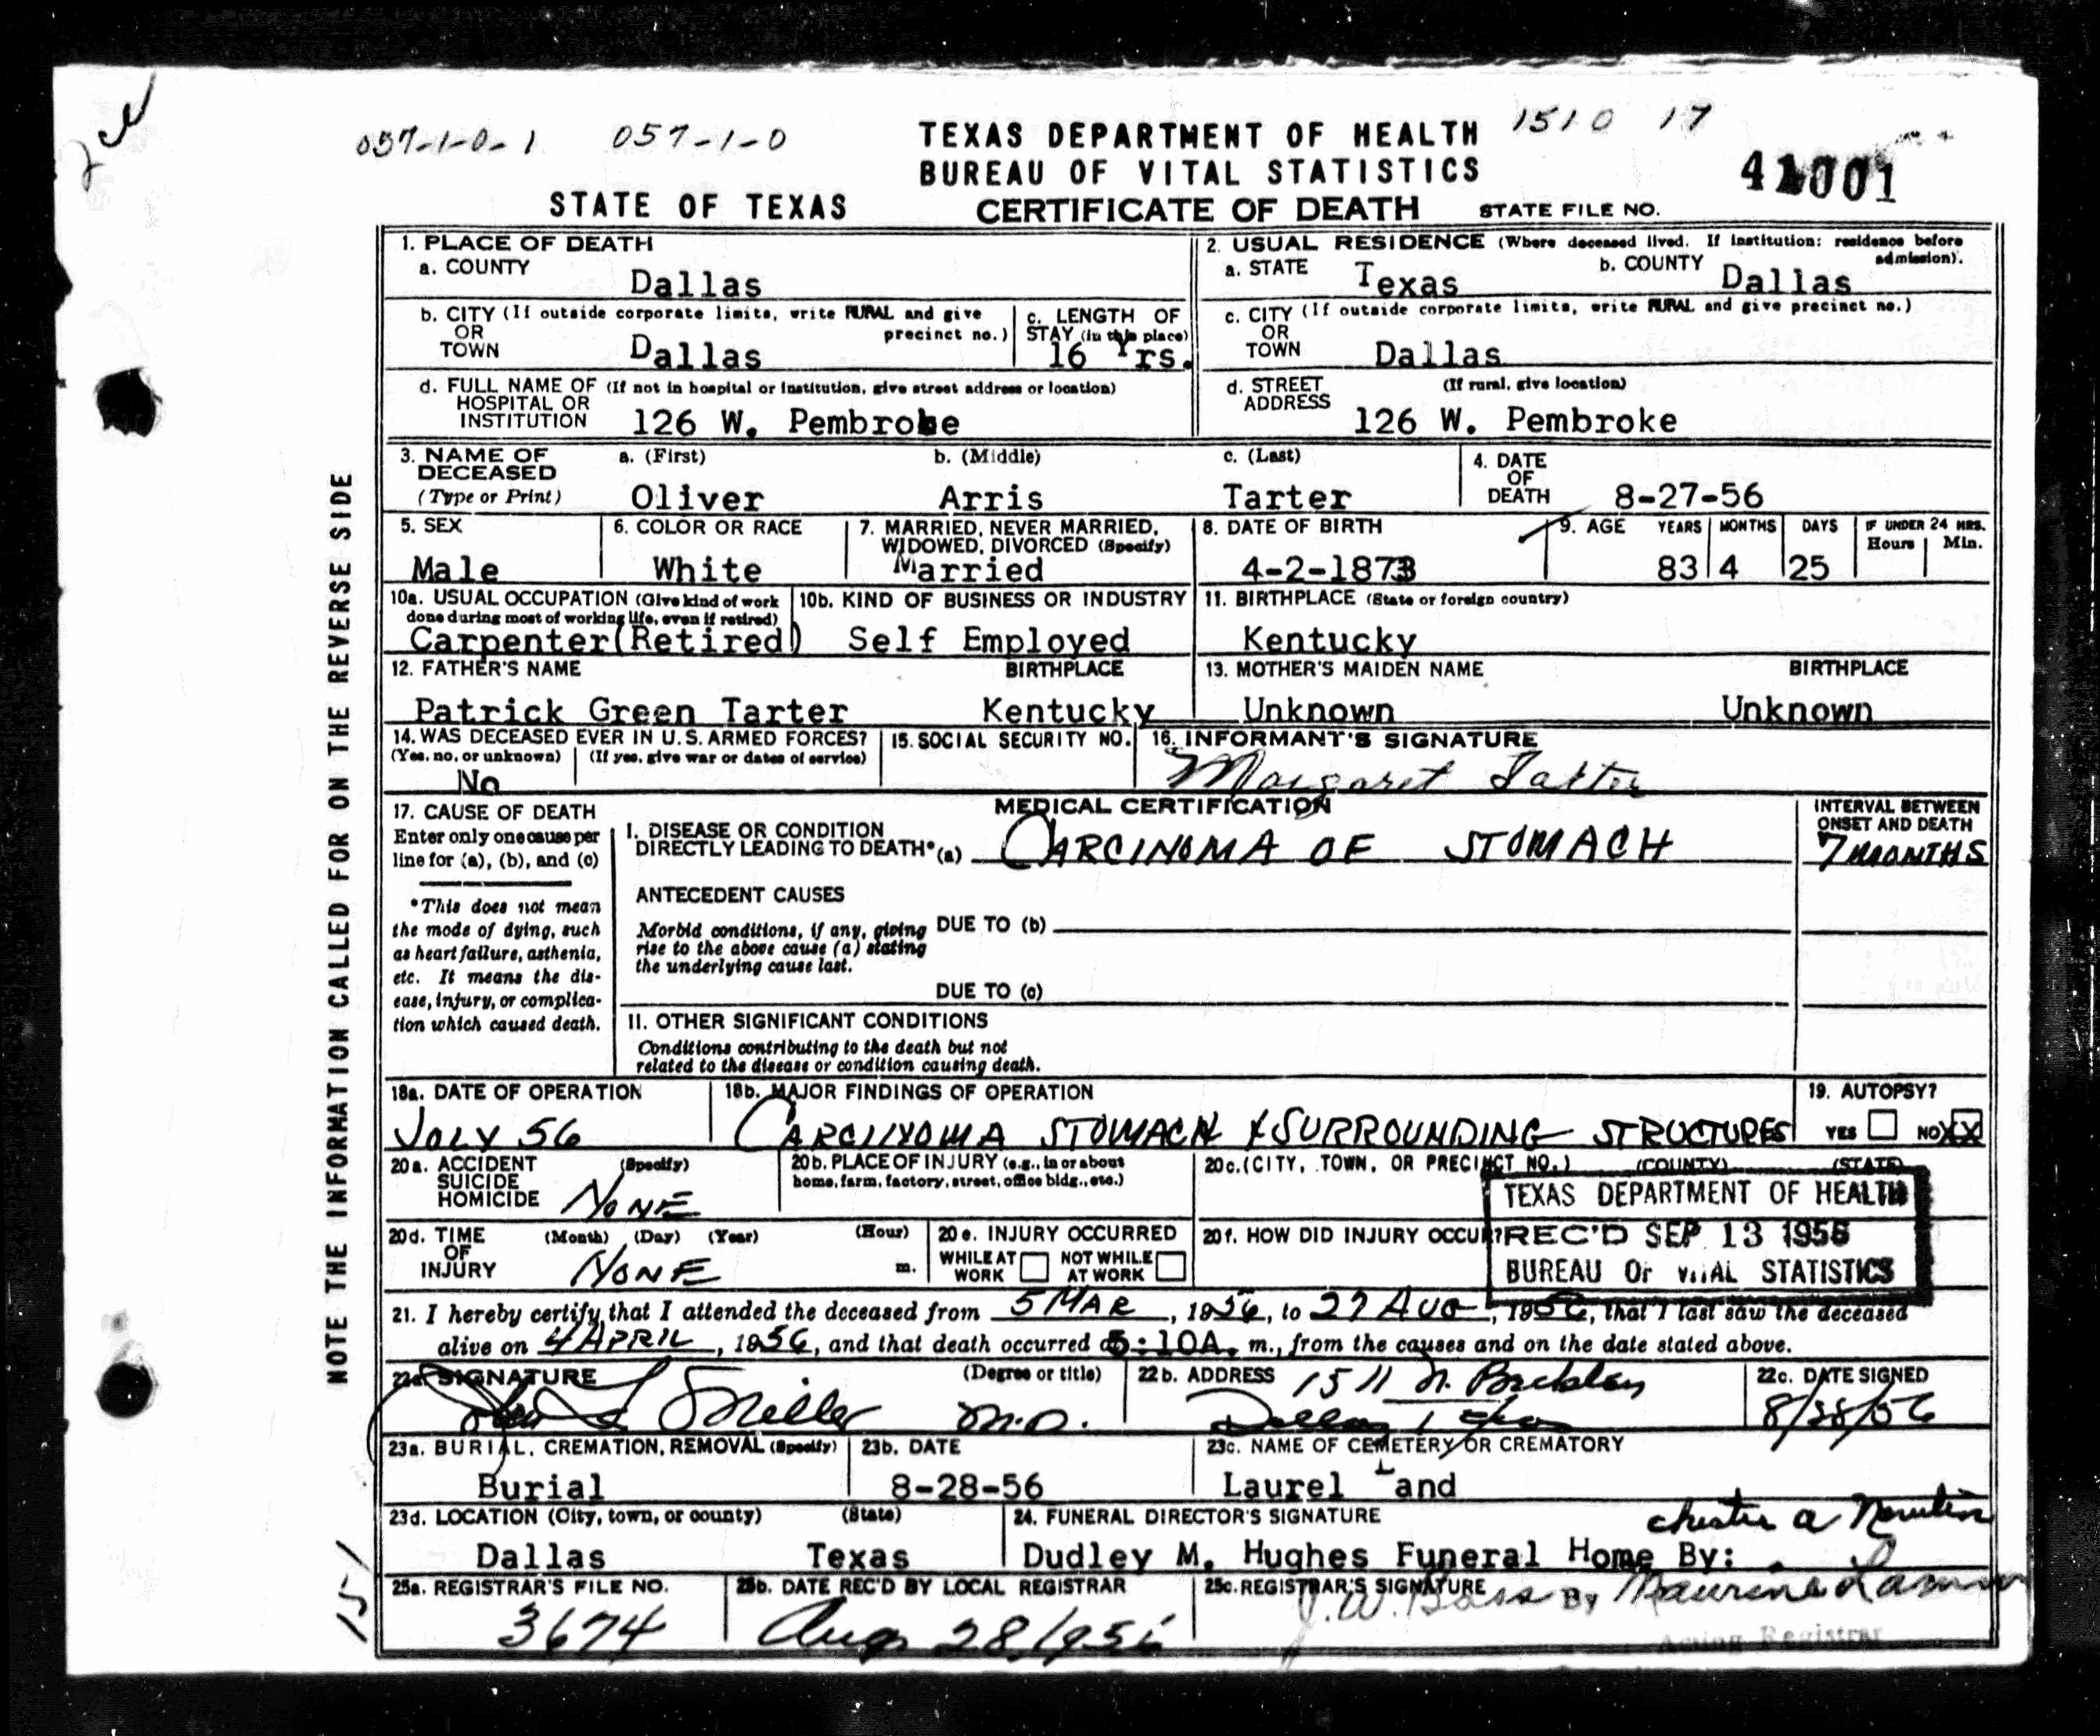 057-1-0-1 057-1-0 TEXAS DEPARTMENT OF HEALTH 1510 17
BUREAU OF VITAL STATISTICS
STATE OF TEXAS CERTIFICATE OF DEATH STATE FILE NO. 41001
NOTE THE INFORMATION CALLED FOR ON THE REVERSE SIDE
1. PLACE OF DEATH
a. COUNTY Dallas
2. USUAL RESIDENCE (Where deceased lived. If institution: residence before admission).
a. STATE Texas b. COUNTY Dallas
b. CITY (If outside corporate limits, write RURAL and give precinct no.)
OR
TOWN Dallas
c. LENGTH OF
STAY (in this place)
16 Yrs.
c. CITY (If outside corporate limits, write RURAL and give precinct no.)
OR
TOWN Dallas
d. FULL NAME OF (If not in hospital or institution, give street address or location)
HOSPITAL OR
INSTITUTION 126 W. Pembroke
d. STREET (If rural, give location)
ADDRESS
126 W. Pembroke
3. NAME OF DECEASED
(Type or Print)
a. (First) Oliver
b. (Middle) Arris
c. (Last) Tarter
4. DATE
OF
DEATH 8-27-56
5. SEX
Male
6. COLOR OR RACE
White
7. MARRIED, NEVER MARRIED,
WIDOWED, DIVORCED (Specify)
Married
8. DATE OF BIRTH
4-2-1873
9. AGE YEARS MONTHS DAYS IF UNDER 24 HRS.
Hours Min.
83 4 25
10a. USUAL OCCUPATION (Give kind of work
done during most of working life, even if retired)
Carpenter(Retired)
10b. KIND OF BUSINESS OR INDUSTRY
Self Employed
11. BIRTHPLACE (State or foreign country)
Kentucky
12. FATHER'S NAME BIRTHPLACE
Patrick Green Tarter Kentucky
13. MOTHER'S MAIDEN NAME BIRTHPLACE
Unknown Unknown
14. WAS DECEASED EVER IN U.S. ARMED FORCES?
(Yes, no, or unknown) (If yes, give war or dates of service)
No
15. SOCIAL SECURITY NO.
16. INFORMANT'S SIGNATURE
Margaret Tarter
17. CAUSE OF DEATH
Enter only one cause per
line for (a), (b), and (c)
*This does not mean
the mode of dying, such
as heart failure, asthenia,
etc. It means the dis-
ease, injury, or complica-
tion which caused death.
MEDICAL CERTIFICATION
I. DISEASE OR CONDITION
DIRECTLY LEADING TO DEATH* (a) CARCINOMA OF STOMACH
INTERVAL BETWEEN
ONSET AND DEATH
7 MONTHS
ANTECEDENT CAUSES
Morbid conditions, if any, giving DUE TO (b)
rise to the above cause (a) stating
the underlying cause last.
DUE TO (c)
II. OTHER SIGNIFICANT CONDITIONS
Conditions contributing to the death but not
related to the disease or condition causing death.
18a. DATE OF OPERATION
JULY 56
18b. MAJOR FINDINGS OF OPERATION
CARCINOMA STOMACH & SURROUNDING STRUCTURES
19. AUTOPSY?
YES NO XX
20a. ACCIDENT (Specify)
SUICIDE
HOMICIDE NONE
20b. PLACE OF INJURY (e.g., in or about
home, farm, factory, street, office bldg., etc.)
20c. (CITY, TOWN, OR PRECINCT NO.) (COUNTY) (STATE)
TEXAS DEPARTMENT OF HEALTH
REC'D SEP 13 1956
BUREAU OF VITAL STATISTICS
20d. TIME (Month) (Day) (Year) (Hour)
OF
INJURY NONE m.
20e. INJURY OCCURRED
WHILE AT WORK NOT WHILE AT WORK
20f. HOW DID INJURY OCCUR?
21. I hereby certify that I attended the deceased from 5 MAR, 1956, to 27 AUG, 1956, that I last saw the deceased
alive on 4 APRIL, 1956, and that death occurred at 5:10A. m., from the causes and on the date stated above.
22a. SIGNATURE (Degree or title)
Miller M.D.
22b. ADDRESS 1511 N. Beckley
Dallas, Texas
22c. DATE SIGNED
8/28/56
23a. BURIAL, CREMATION, REMOVAL (Specify)
Burial
23b. DATE
8-28-56
23c. NAME OF CEMETERY OR CREMATORY
Laurel Land
23d. LOCATION (City, town, or county) (State)
Dallas Texas
24. FUNERAL DIRECTOR'S SIGNATURE
Chester A
Dudley M. Hughes Funeral Home By:
25a. REGISTRAR'S FILE NO.
3674
25b. DATE REC'D BY LOCAL REGISTRAR
Aug 28 1956
25c. REGISTRAR'S SIGNATURE
J.W. Bass By Maurine
Acting Registrar
151